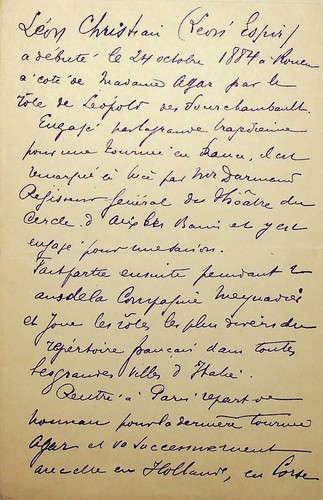 Léon Christian (Léon Espir)
a débuté le 24 octobre 1884 à Rouen
à côté de Madame Agar par le
rôle de Léopold des Fourchambault.
Engagé par la grande tragédienne
pour une tournée en France, il est
remarqué à par Mr Darmand
Régisseur général du Théâtre du
Cercle d'Aix les Bains et y est
engagé pour une saison.
Fait partie ensuite pendant 2
ans de la Compagnie Meynadier
et joue les rôles les plus divers du
répertoire français dans toutes
les grandes villes d'Italie.
Rentré à Paris repart de
nouveau pour la dernière tournée
Agar et va successivement
avec elle en Hollande, en Corse